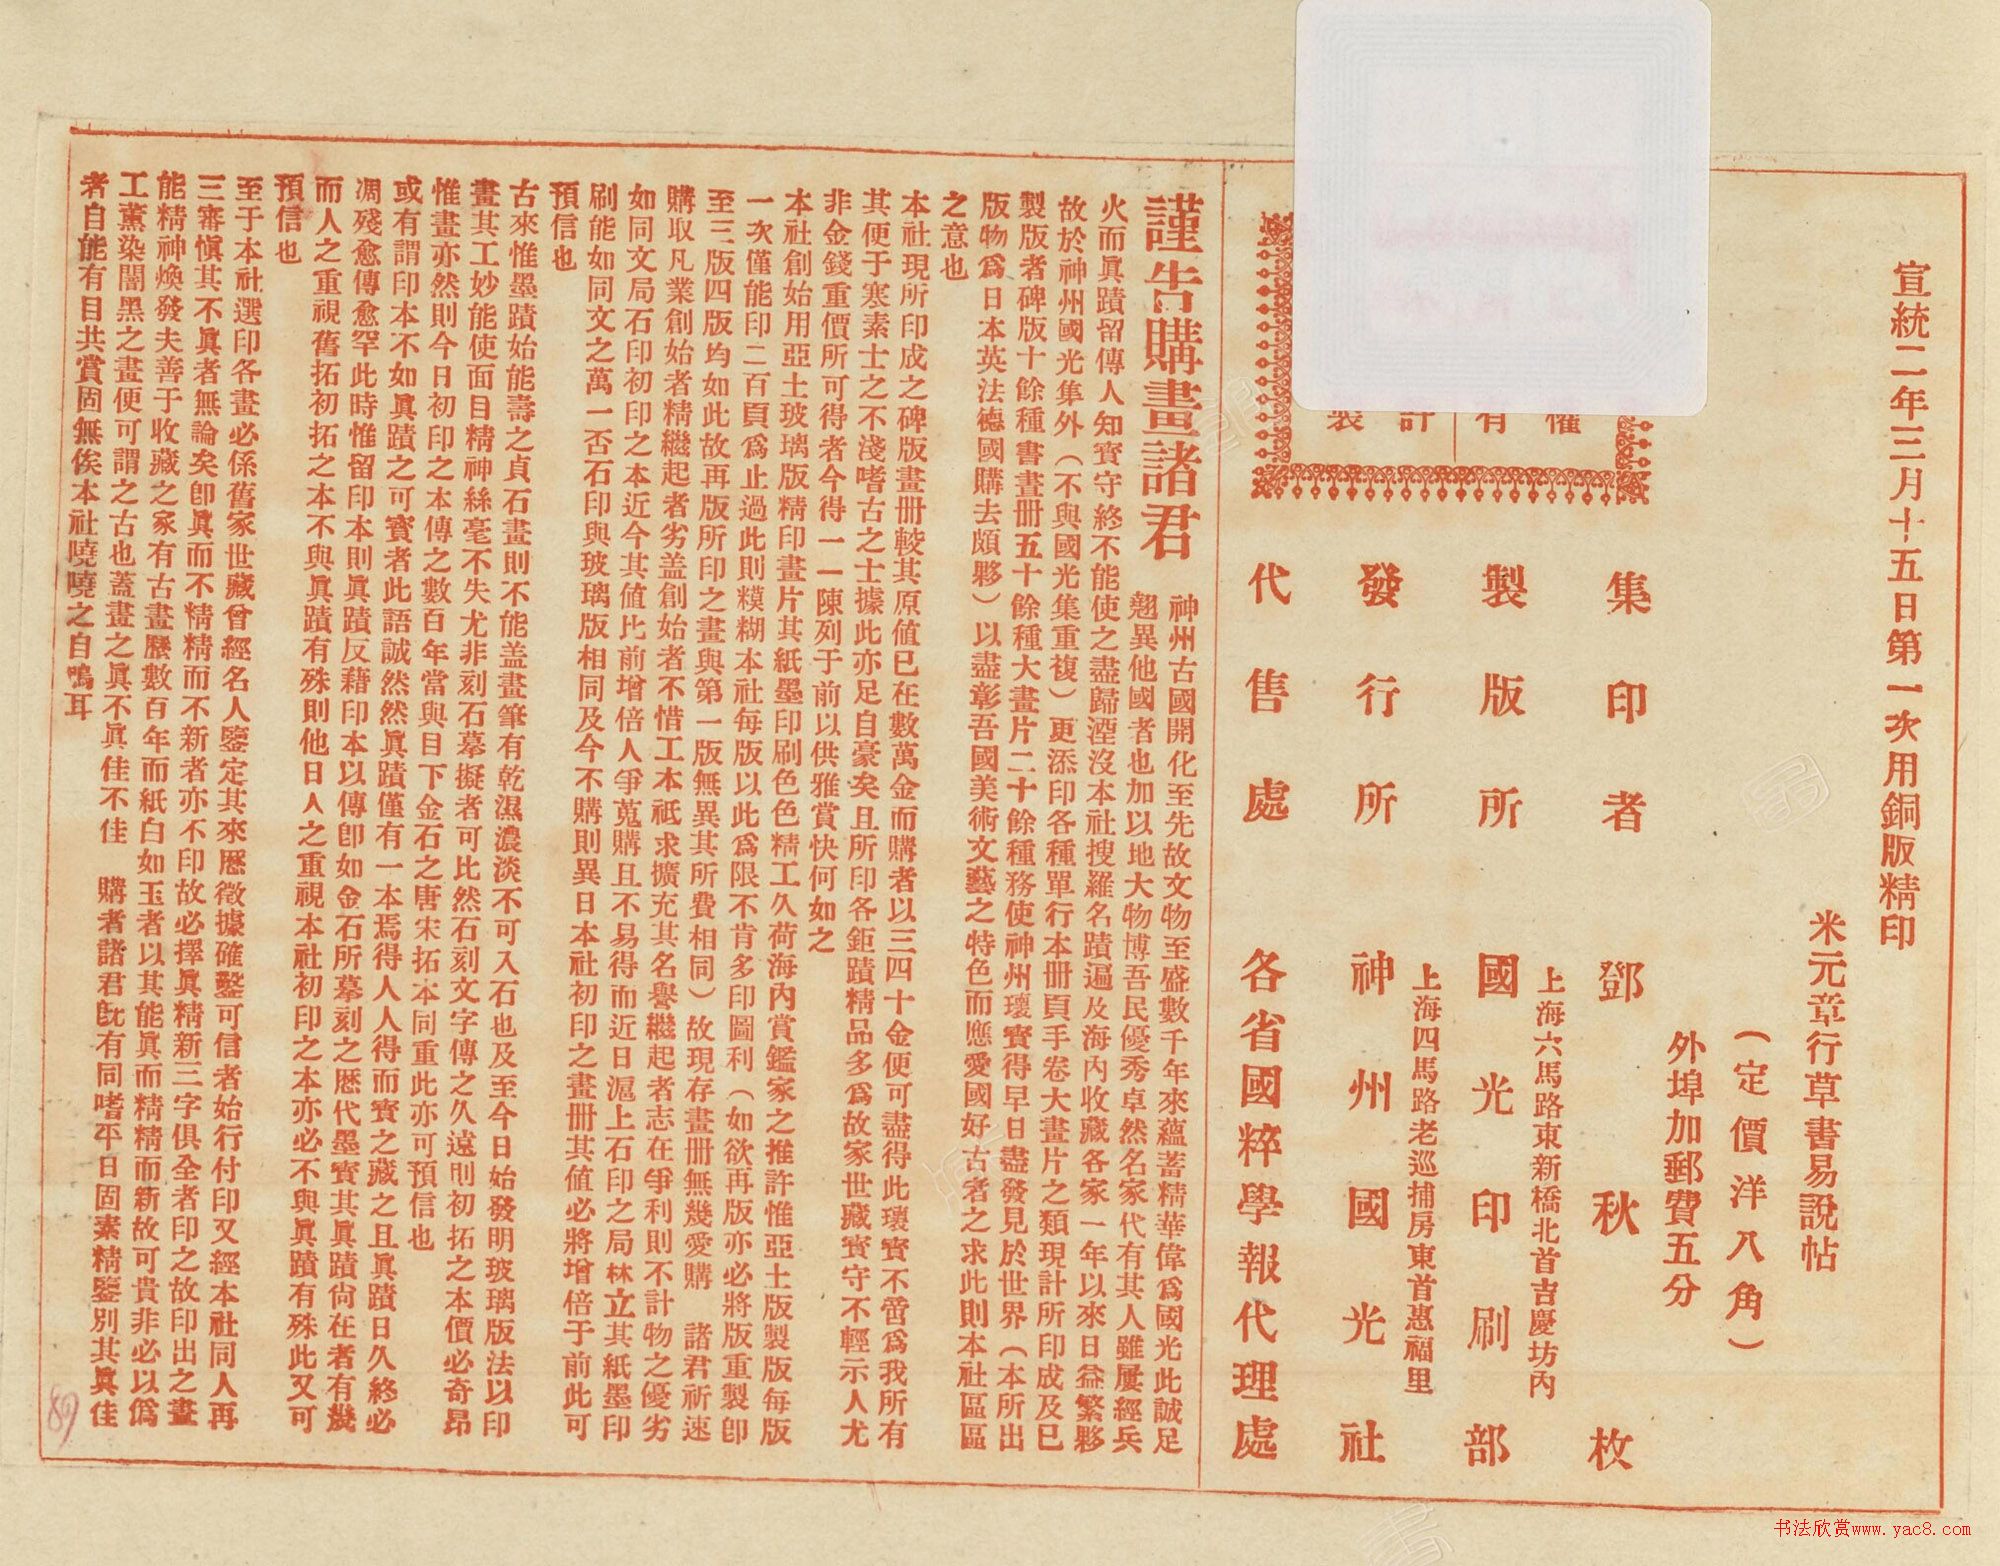 宣統二年三月十五日第一次用銅版精印
米元章行草書易說帖
（定價洋八角）
外埠加郵費五分
集印者 鄧秋枚
上海六馬路東新橋北首吉慶坊內
製版所 國光印刷部
上海四馬路老巡捕房東首惠福里
發行所 神州國光社
代售處 各省國粹學報代理處
權有
許製
謹告購畫諸君
神州古國開化至先故文物至盛數千年來蘊蓄精華偉爲國光此誠足
翹異他國者也加以地大物博吾民優秀卓然名家代有其人雖屢經兵
火而眞蹟留傳人知寶守終不能使之盡歸湮沒本社搜羅名蹟遍及海內收藏各家一年以來日益繁夥
故於神州國光集外（不與國光集重複）更添印各種單行本冊頁手卷大畫片之類現計所印成及已
製版者碑版十餘種書畫冊五十餘種大畫片二十餘種務使神州瓌寶得早日盡發見於世界（本所出
版物爲日本英法德國購去頗夥）以盡彰吾國美術文藝之特色而應愛國好古者之求此則本社區區
之意也
本社現所印成之碑版畫冊較其原值已在數萬金而購者以三四十金便可盡得此瓌寶不啻爲我所有
其便于寒素士之不淺嗜古之士據此亦足自豪矣且所印各鉅蹟精品多爲故家世藏寶守不輕示人尤
非金錢重價所可得者今得一一陳列于前以供雅賞快何如之
本社創始用亞土玻璃版精印畫片其紙墨印刷色色精工久荷海內賞鑑家之推許惟亞土版製版每版
一次僅能印二百頁爲止過此則糢糊本社每版以此爲限不肯多印圖利（如欲再版亦必將版重製卽
至三版四版均如此故再版所印之畫與第一版無異其所費相同）故現存畫冊無幾愛購 諸君祈速
購取凡業創始者精繼起者劣盖創始者不惜工本祇求擴充其名譽繼起者志在爭利則不計物之優劣
如同文局石印初印之本近今其値比前增倍人爭蒐購且不易得而近日滬上石印之局林立其紙墨印
刷能如同文之萬一否石印與玻璃版相同及今不購則異日本社初印之畫冊其値必將增倍于前此可
預信也
古來惟墨蹟始能壽之貞石畫則不能盖畫筆有乾濕濃淡不可入石也及至今日始發明玻璃版法以印
畫其工妙能使面目精神絲毫不失尤非刻石摹擬者可比然石刻文字傳之久遠則初拓之本價必奇昂
惟畫亦然則今日初印之本傳之數百年當與目下金石之唐宋拓本同重此亦可預信也
或有謂印本不如眞蹟之可寶者此語誠然然眞蹟僅有一本焉得人人得而寶之藏之且眞蹟日久終必
凋殘愈傳愈罕此時惟留印本則眞蹟反藉印本以傳卽如金石所摹刻之歷代墨寶其眞蹟尙在者有幾
而人之重視舊拓初拓之本不與眞蹟有殊則他日人之重視本社初印之本亦必不與眞蹟有殊此又可
預信也
至于本社選印各畫必係舊家世藏曾經名人鑒定其來歷徵據確鑿可信者始行付印又經本社同人再
三審愼其不眞者無論矣卽眞而不精精而不新者亦不印故必擇眞精新三字俱全者印之故印出之畫
能精神煥發夫善于收藏之家有古畫歷數百年而紙白如玉者以其能眞而精精而新故可貴非必以僞
工薰染闇黑之畫便可謂之古也蓋畫之眞不眞佳不佳 購者諸君旣有同嗜平日固素精鑒別其眞佳
者自能有目共賞固無俟本社曉曉之自鳴耳
89
书法欣赏www.yac8.com